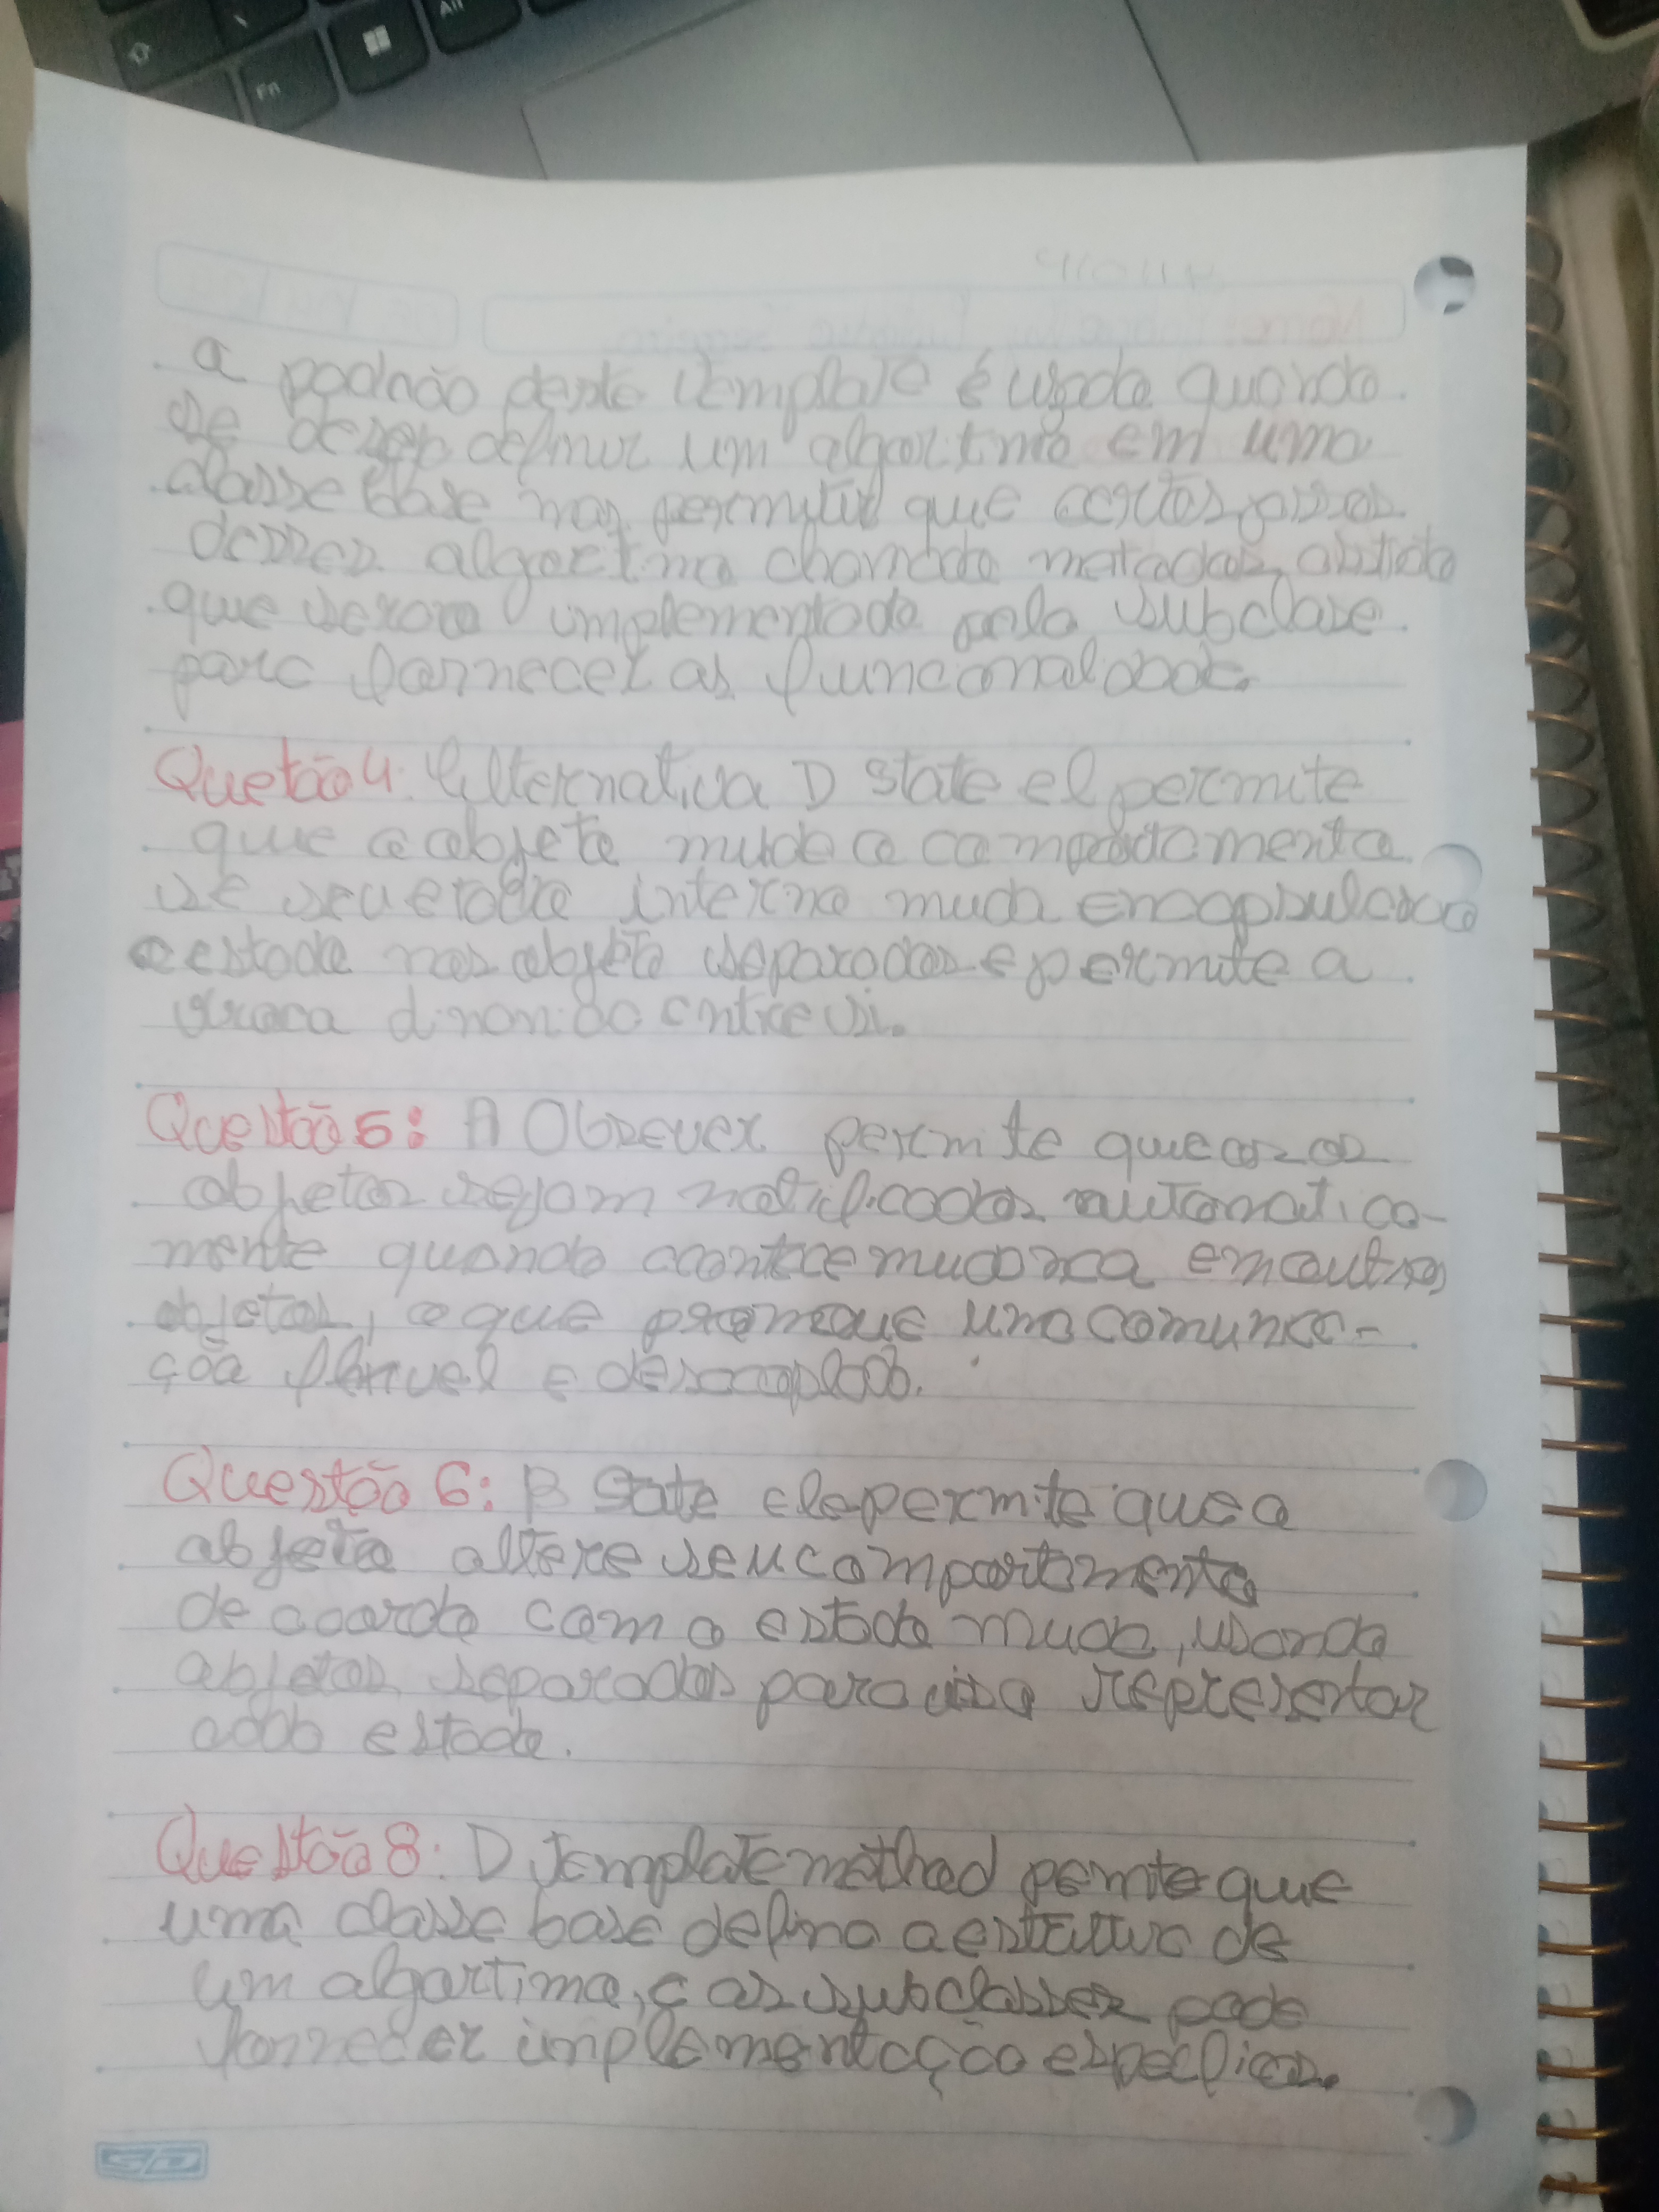 a padrão deste template é usado quando
se desep definir um algoritmo em uma
classe base mas permitir que certos passos
desses algoritmo chamado metodos abstrato
que serora implementado pela subclase
para fornecer as funcionalidade.
Quetão 4: Alternativa D State el permite
que o objeto mude o comportamento
se seu estado interno muda encapsulando
o estado nos objeto separados e permite a
troca dinamica entre si.
Questão 5: A Obsever permite que os os
objetos sejam notificados automatica-
mente quando acontece mudança em outros
objetos, o que promove uma comunica-
ção flexivel e desacoplada.
Questão 6: B State ele permite que o
objeto altere seu comportamento
de acordo com o estado muda, usando
objetos separados para isso representar
cada estado.
Questão 8: D Template method permite que
uma classe base defina a estrutura de
um algoritimo, e as subclasses pode
fornecer implementação especificas.
SD
Fn
Alt